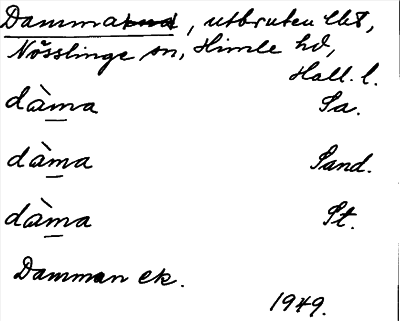 Damma, utbruten lht,
Nösslinge sn, Himle hd,
Hall. l.
dàma Sa.
dàma Sand.
dàma St.
Damman ek.
1949.